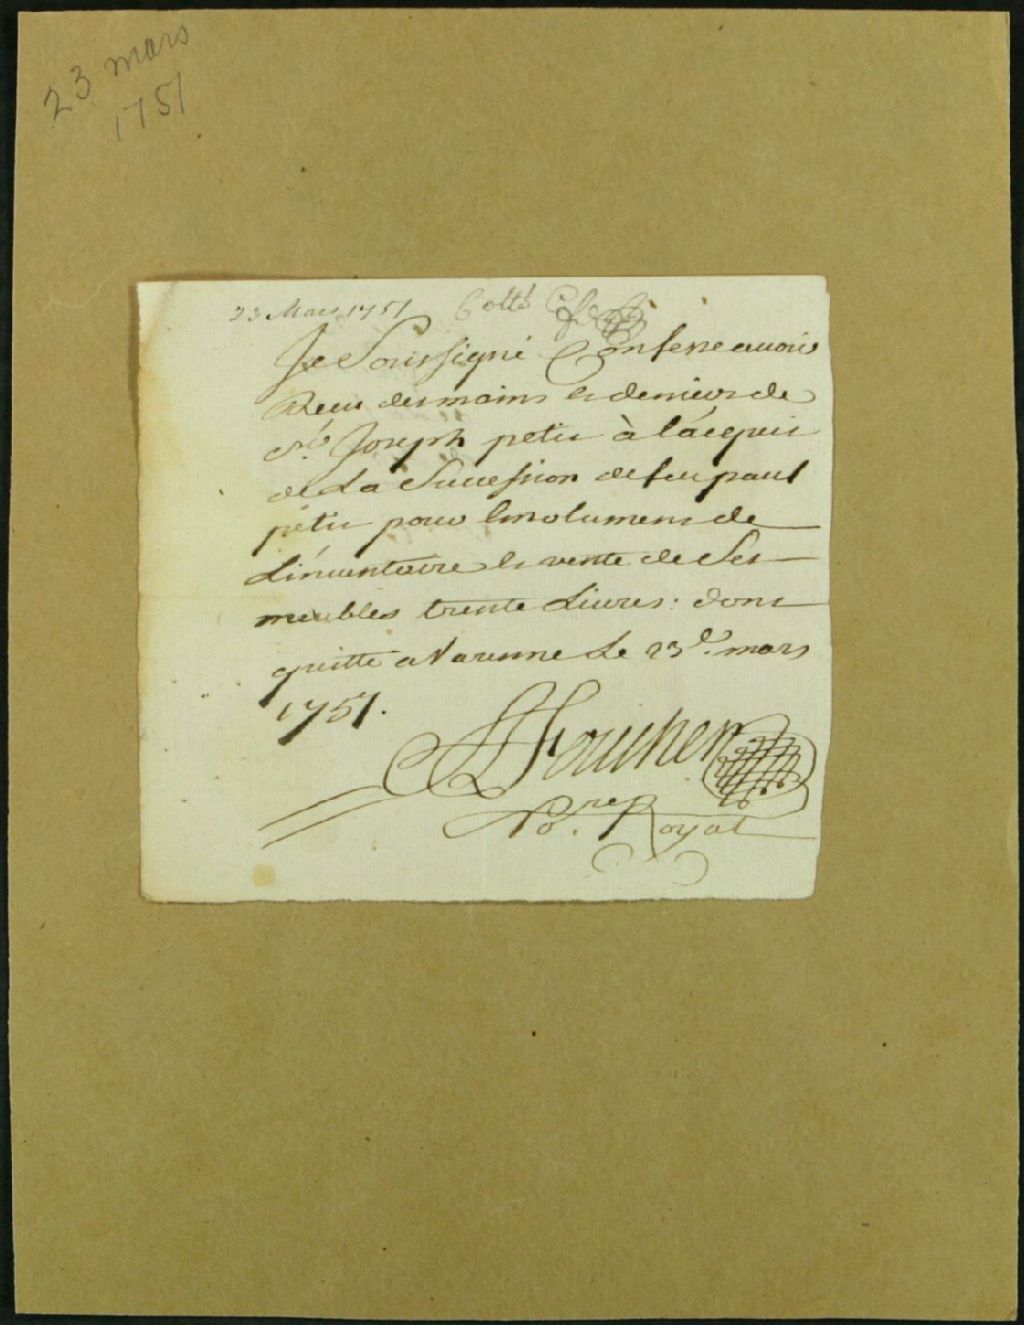 23 mars
1751
23 Mars 1751 Cotté
Je Soussigné Confesse avoir
Receu des mains & deniers de
Sr. Joseph petit à l'acquit
de La Succession de feu paul
petit pour Emolumens de
L'inventaire & vente de Ses
meubles trente Livres: dont
quitte a Varenne Le 23e. mars
1751.
Foucher
No.re Royal